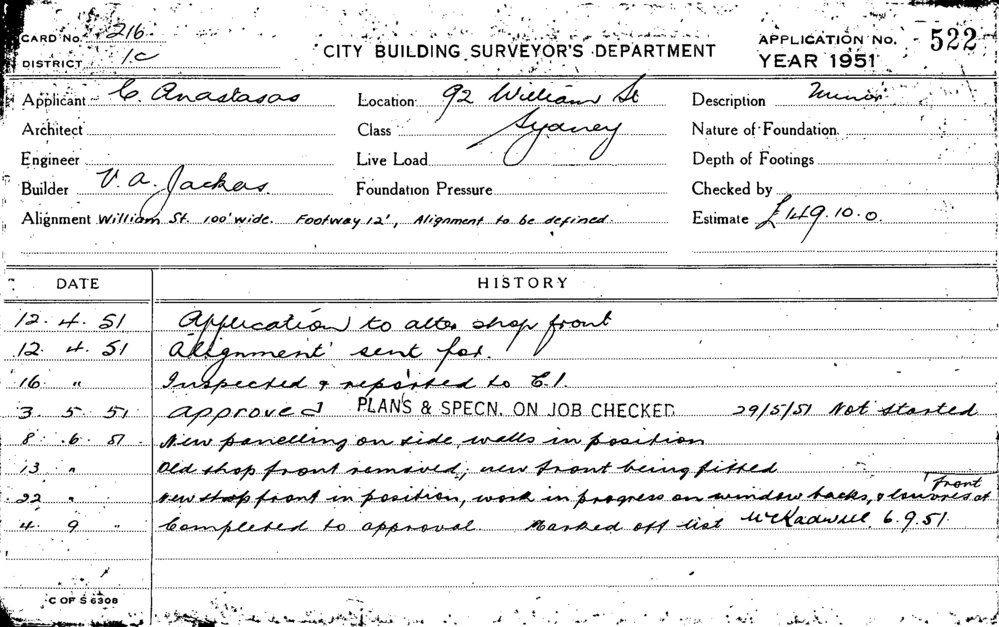 CARD No. 216
DISTRICT 1c
CITY BUILDING SURVEYOR'S DEPARTMENT
APPLICATION No. 522
YEAR 1951
Applicant C. Anastasas
Location 92 William St
Description Minor
Architect
Class Sydney
Nature of Foundation
Engineer
Live Load
Depth of Footings
Builder V. A. Jackas.
Foundation Pressure
Checked by
Alignment William St. 100' wide. Footway 12', Alignment to be defined
Estimate £149.10.0
DATE HISTORY
12. 4. 51 Application to alter shop front
12. 4. 51 Alignment sent for.
16. " Inspected & reported to C.I.
3. 5. 51 Approved PLANS & SPECN. ON JOB CHECKED 29/5/51 Not started
8. 6. 51 New panelling on side walls in position
13 " Old shop front removed; new front being fitted
22 " New shop front in position, work in progress on window backs, & louvres at front
4 9 " Completed to approval. Marked off list 6.9.51.
C OF S 6308